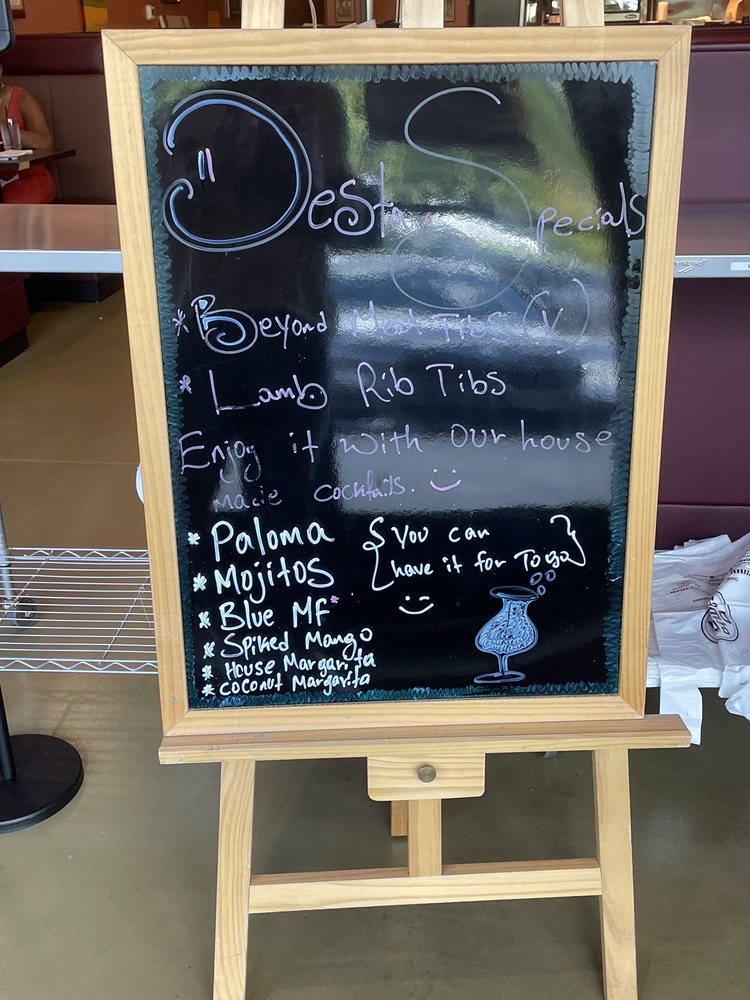 Desta Specials
* Beyond Meat Tibs (V)
* Lamb Rib Tibs
Enjoy it with our house
made cocktails.
* Paloma
* Mojitos
* Blue MF*
* Spiked Mango
* House Margarita
* Coconut Margarita
{You can
have it for Togo}